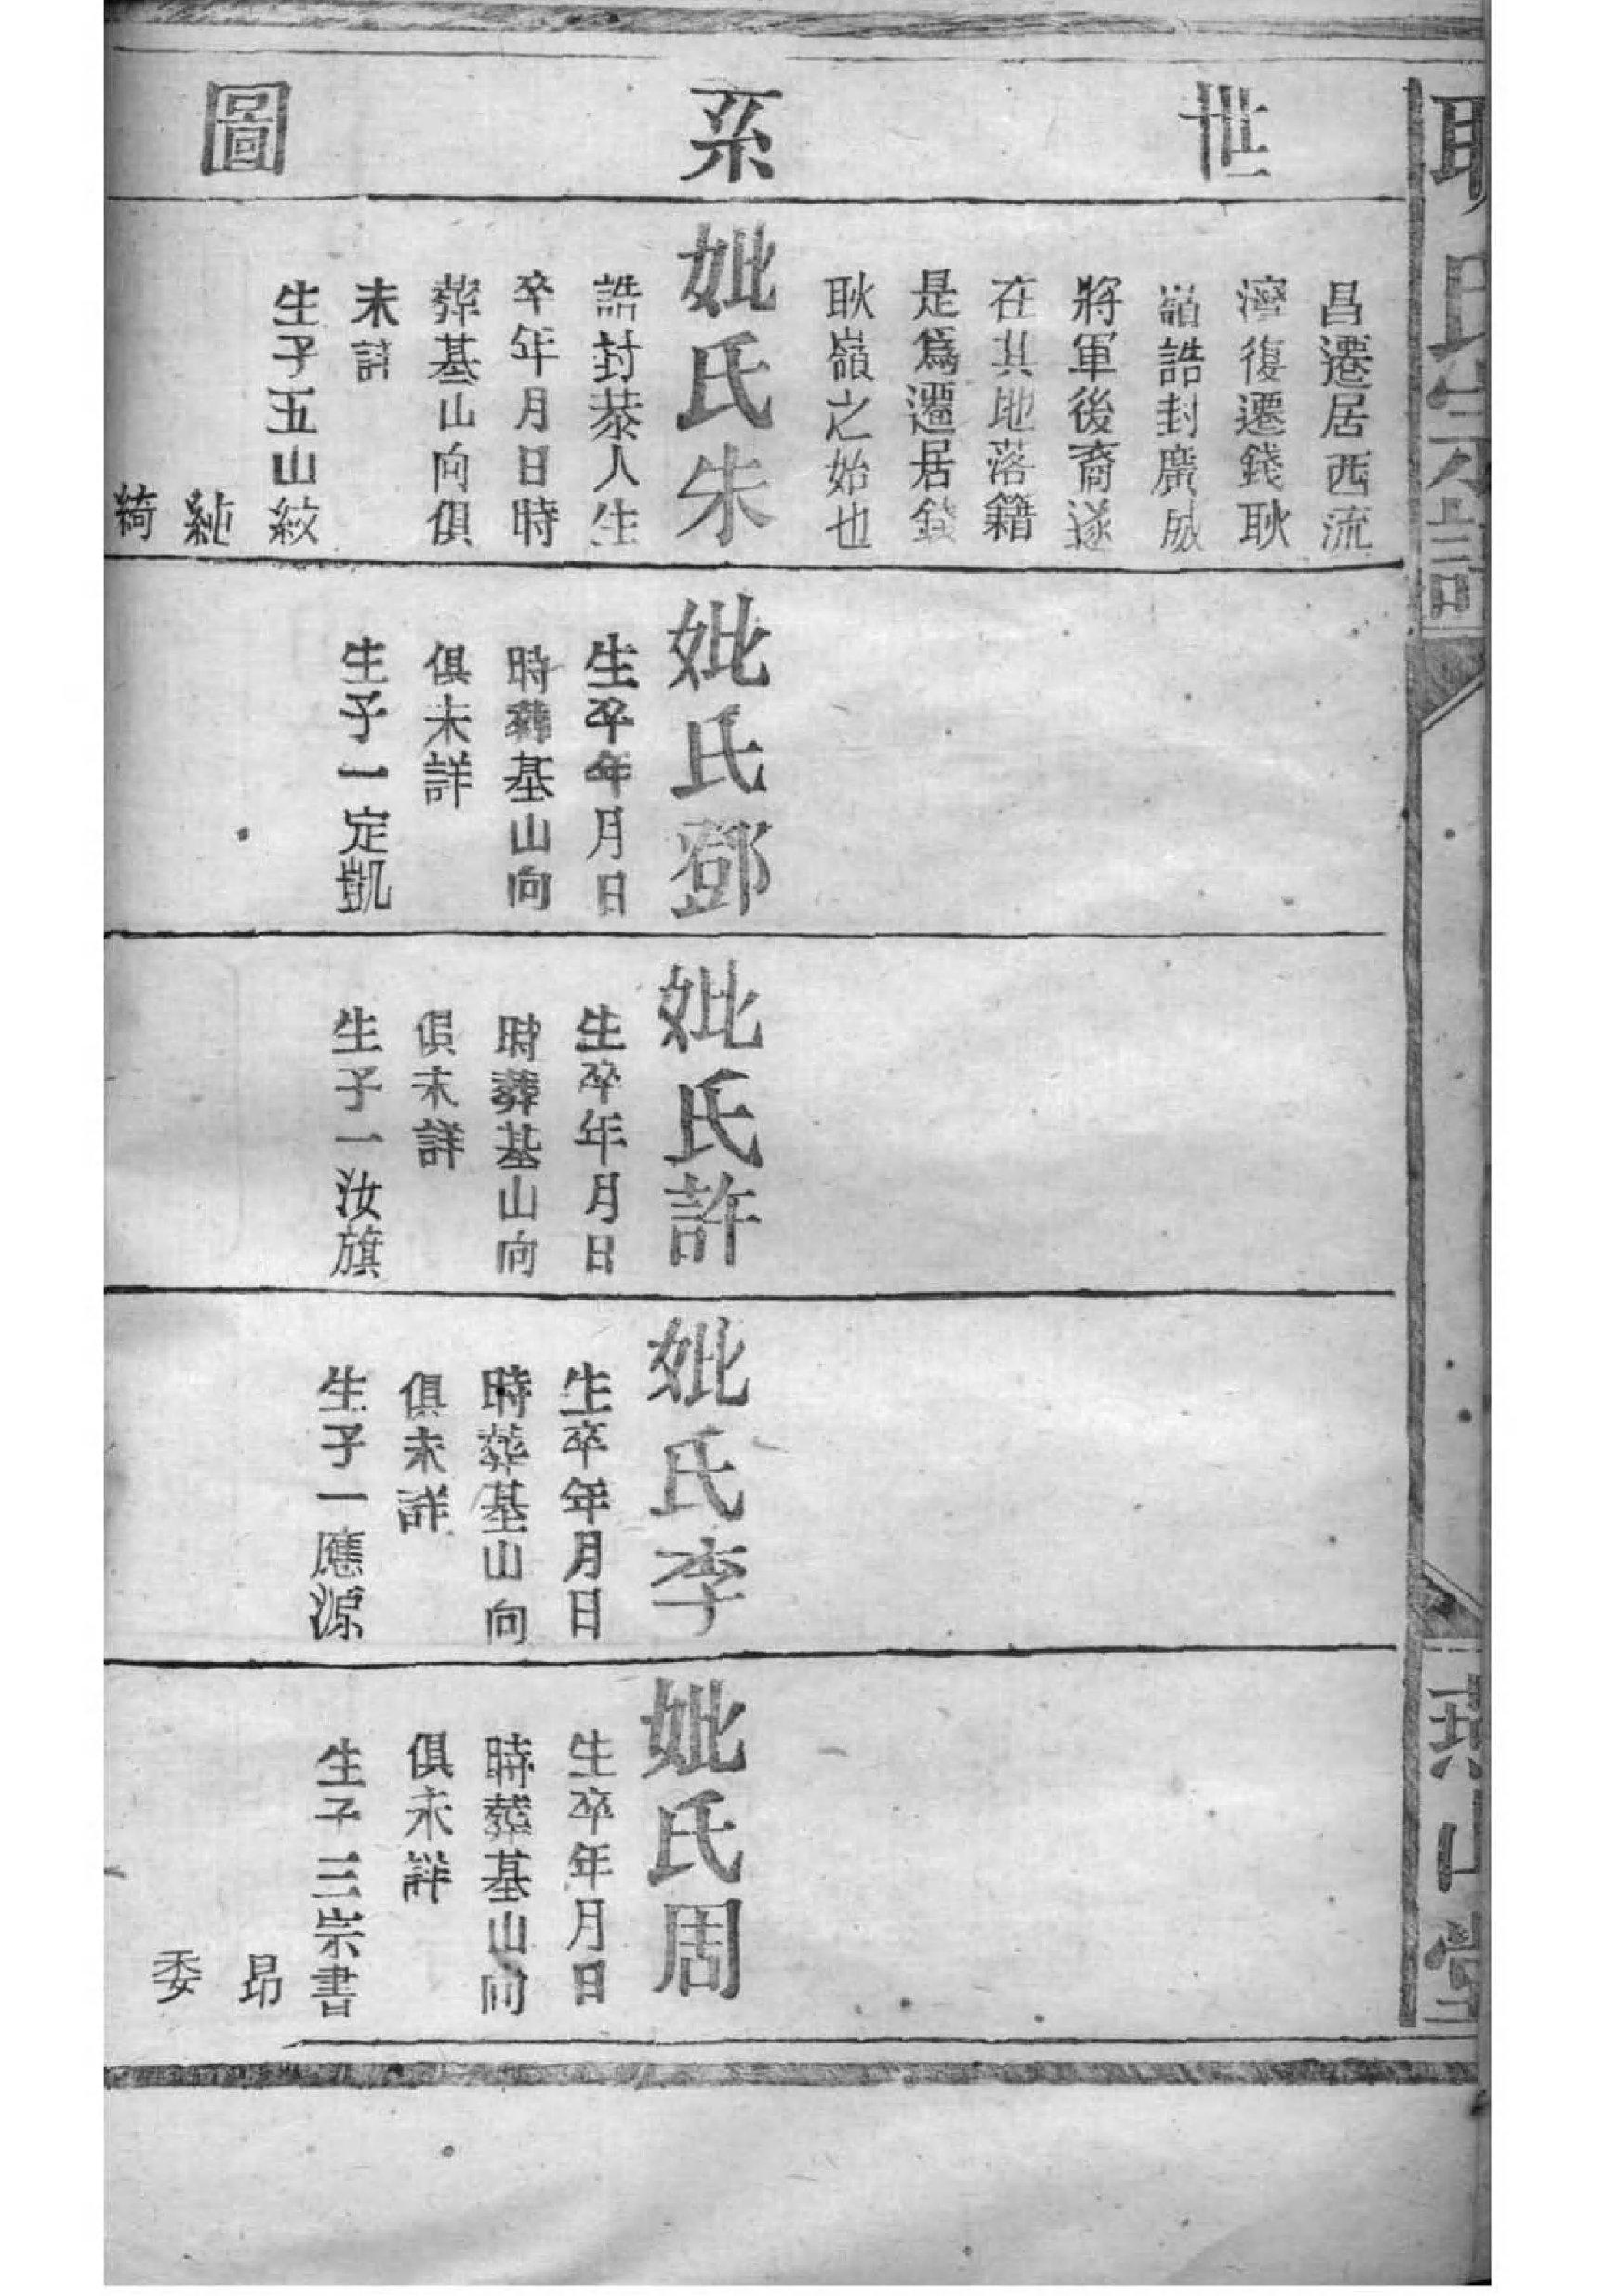 耿氏宗譜
燕山堂
世系圖
昌遷居西流
濟復遷錢耿
嶺誥封廣威
將軍後裔遂
在其地落籍
是爲遷居錢
耿嶺之始也
妣氏朱
誥封恭人生
卒年月日時
葬基山向俱
未詳
生子五山紋
純
綺
妣氏鄧
生卒年月日
時葬基山向
俱未詳
生子一定凱
妣氏許
生卒年月日
時葬基山向
俱未詳
生子一汝旗
妣氏李
生卒年月日
時葬基山向
俱未詳
生子一應源
妣氏周
生卒年月日
時葬基山向
俱未詳
生子三崇書
昂
委